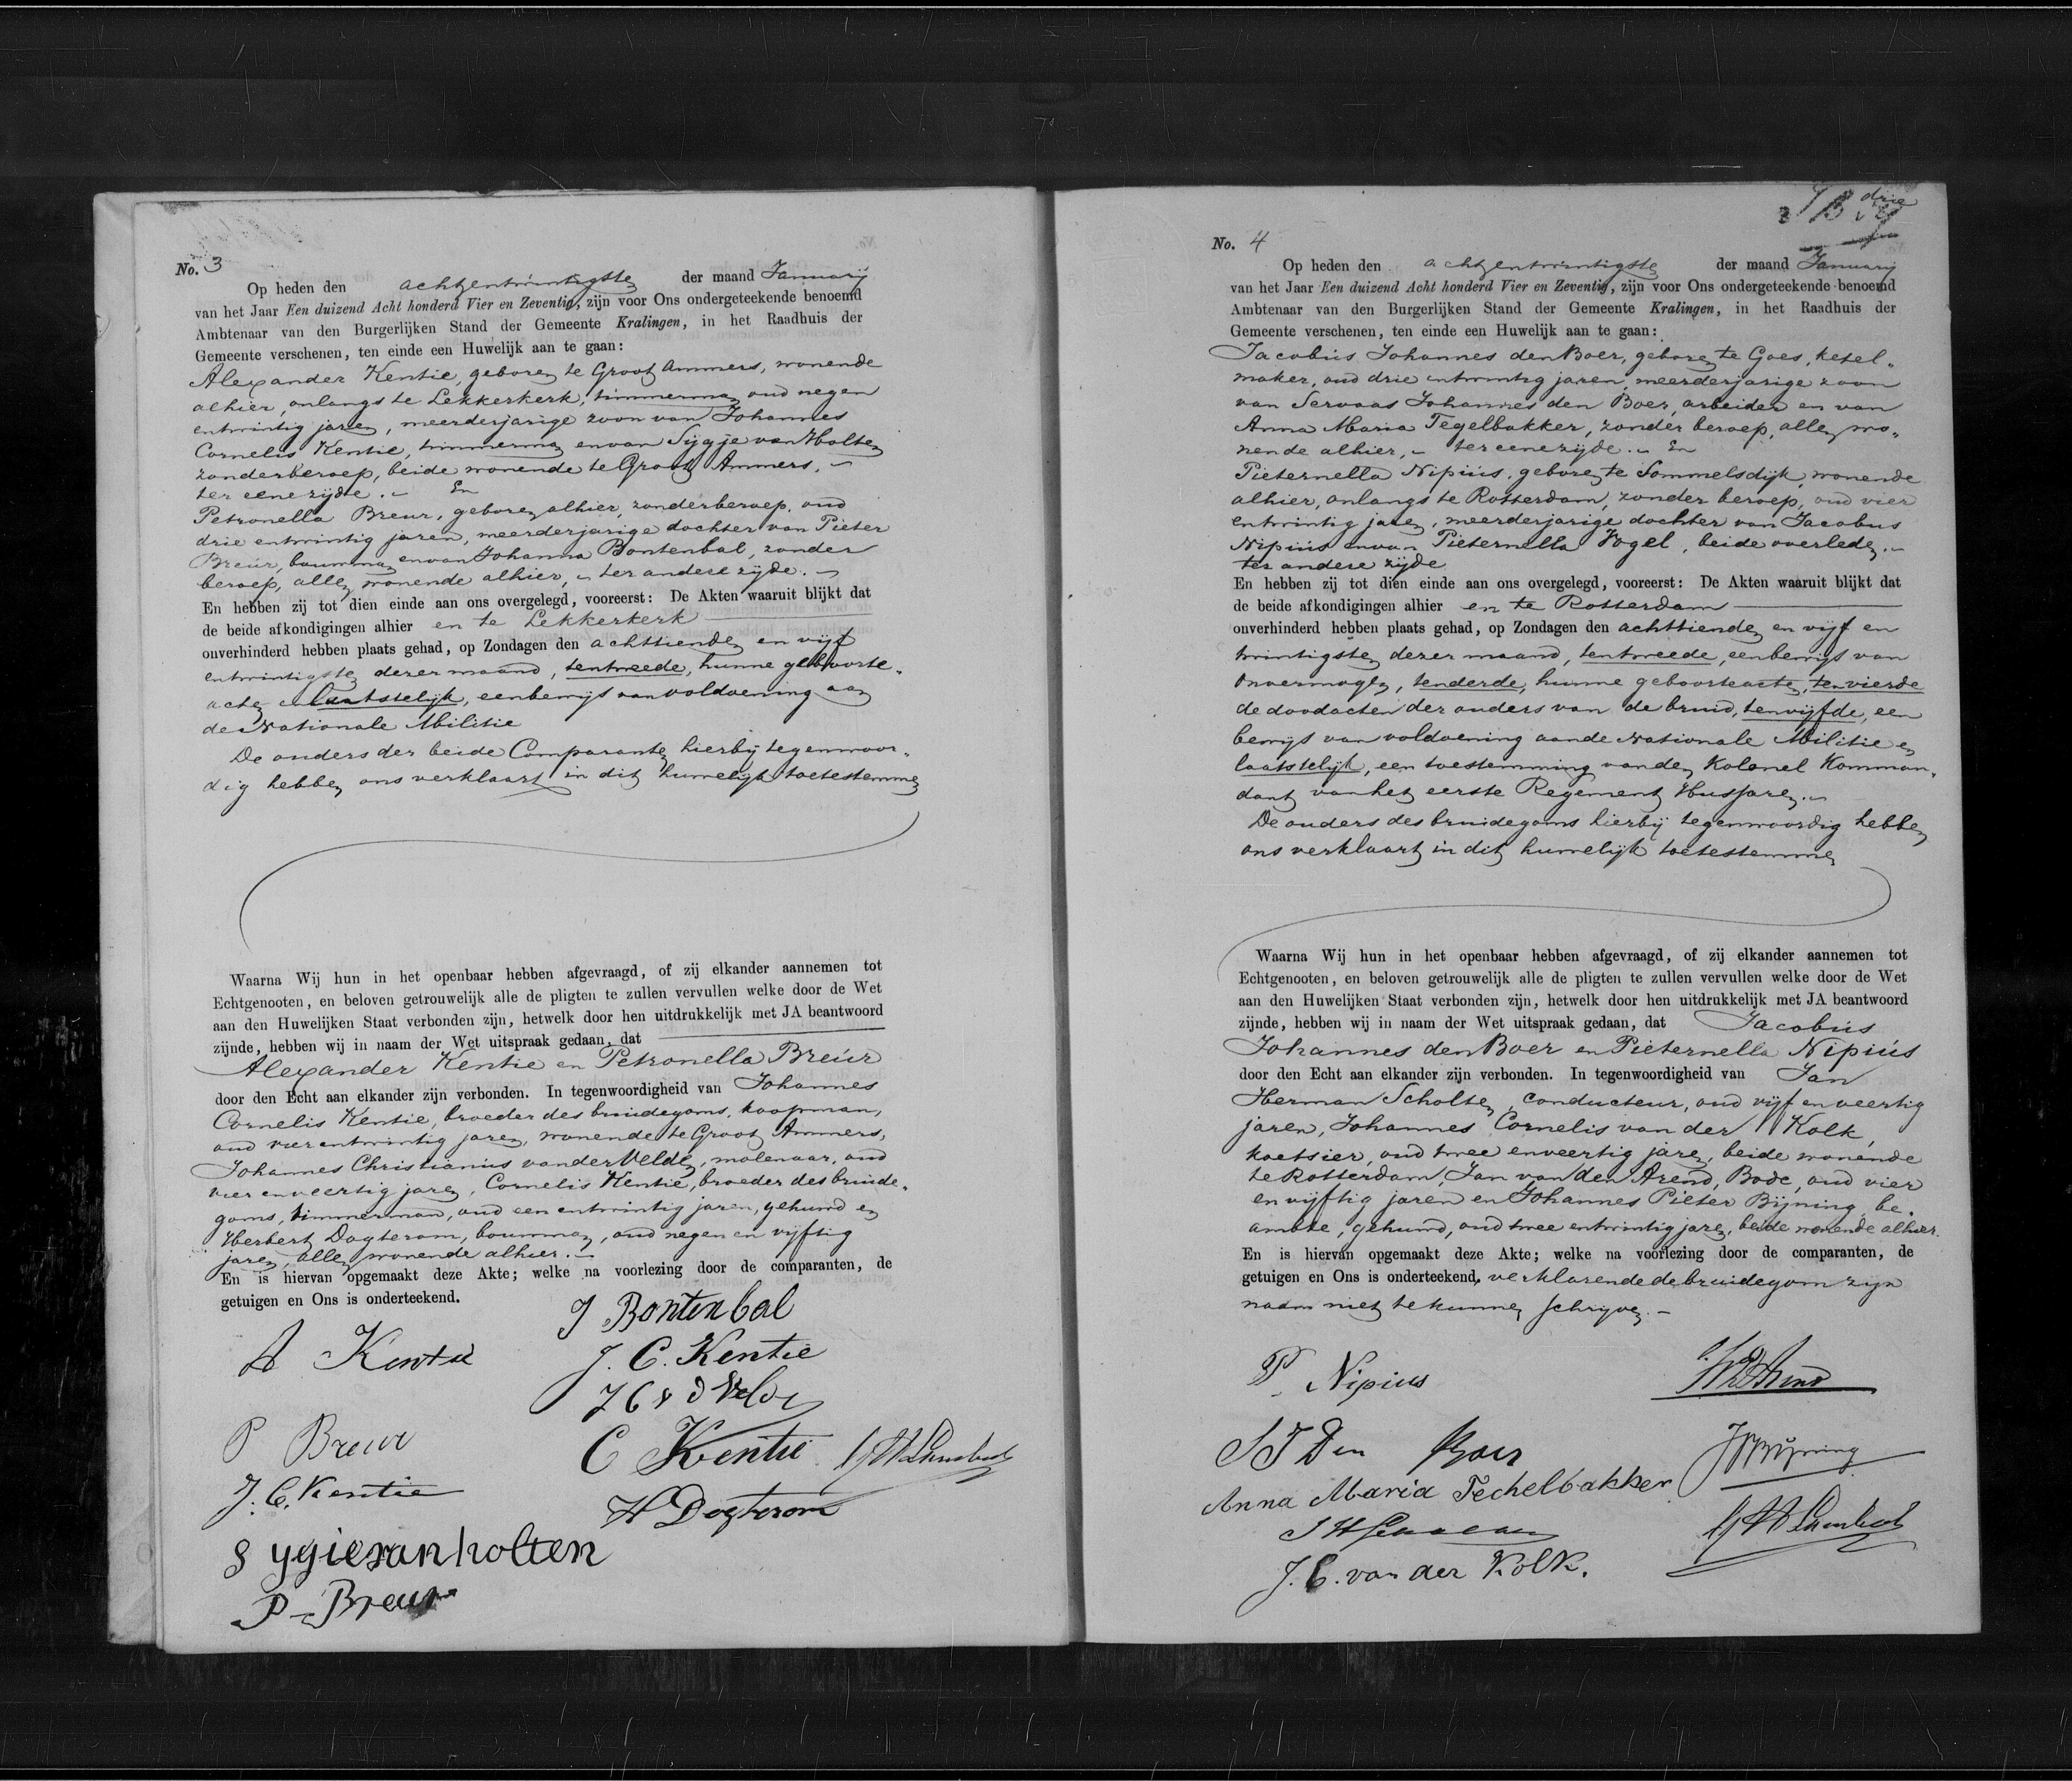 No. 3
Op heden den achtentwintigste der maand Januarij
van het Jaar Een duizend Acht honderd Vier en Zeventig, zijn voor Ons ondergeteekende benoemd
Ambtenaar van den Burgerlijken Stand der Gemeente Kralingen, in het Raadhuis der
Gemeente verschenen, ten einde een Huwelijk aan te gaan:
Alexander Kentie, geboren te Groot Ammers, wonende
alhier, onlangs te Lekkerkerk, timmerman oud negen
entwintig jaren, meerderjarige zoon van Johannes
Cornelis Kentie, timmerman en van Sijgje van Holten
zonder beroep, beide wonende te Groot Ammers,
ter eene zijde. En
Petronella Breur, geboren alhier, zonder beroep, oud
drie entwintig jaren, meerderjarige dochter van Pieter
Breur, bouwman en van Johanna Bontenbal, zonder
beroep, allen wonende alhier, ter andere zijde.
En hebben zij tot dien einde aan ons overgelegd, vooreerst: De Akten waaruit blijkt dat
de beide afkondigingen alhier en te Lekkerkerk
onverhinderd hebben plaats gehad, op Zondagen den achttienden en vijf
entwintigsten dezer maand, tentweede, hunne geboorte-
acten laatstelijk, een bewijs van voldoening aan
de Nationale Militie
De ouders der beide Comparanten hierbij tegenwoor-
dig hebben ons verklaart in dit huwelijk toetestemmen
Waarna Wij hun in het openbaar hebben afgevraagd, of zij elkander aannemen tot
Echtgenooten, en beloven getrouwelijk alle de pligten te zullen vervullen welke door de Wet
aan den Huwelijken Staat verbonden zijn, hetwelk door hen uitdrukkelijk met JA beantwoord
zijnde, hebben wij in naam der Wet uitspraak gedaan, dat
Alexander Kentie en Petronella Breur
door den Echt aan elkander zijn verbonden. In tegenwoordigheid van Johannes
Cornelis Kentie, broeder des bruidegoms, koopman,
oud vier entwintig jaren, wonende te Groot Ammers,
Johannes Christianus van der Velde, molenaar, oud
vier en veertig jaren, Cornelis Kentie, broeder des bruide-
goms, timmerman, oud een entwintig jaren, gehuwd en
Herbert Dogterom, bouwman, oud negen en vijftig
jaren, allen wonende alhier.
En is hiervan opgemaakt deze Akte; welke na voorlezing door de comparanten, de
getuigen en Ons is onderteekend.
J Bontenbal
A Kentie
J. C. Kentie
J C v d Velde
P Breur
C Kentie
J. C. Kentie
H Dogterom
Sygie van holten
P Breur
drie
No. 4
Op heden den achtentwintigste der maand Januarij
van het Jaar Een duizend Acht honderd Vier en Zeventig, zijn voor Ons ondergeteekende benoemd
Ambtenaar van den Burgerlijken Stand der Gemeente Kralingen, in het Raadhuis der
Gemeente verschenen, ten einde een Huwelijk aan te gaan:
Jacobus Johannes den Boer, geboren te Goes, ketel-
maker, oud drie entwintig jaren, meerderjarige zoon
van Servaas Johannes den Boer, arbeider en van
Anna Maria Tegelbakker, zonder beroep, allen wo-
nende alhier, ter eene zijde. En
Pieternella Nipius, geboren te Sommelsdijk, wonende
alhier, onlangs te Rotterdam, zonder beroep, oud vier
entwintig jaren, meerderjarige dochter van Jacobus
Nipius en van Pieternella Vogel, beide overleden.
ter andere zijde
En hebben zij tot dien einde aan ons overgelegd, vooreerst: De Akten waaruit blijkt dat
de beide afkondigingen alhier en te Rotterdam
onverhinderd hebben plaats gehad, op Zondagen den achttienden en vijf en
twintigsten dezer maand, tentweede, een bewijs van
onvermogen, tenderde, hunne geboorteacten, tenvierde
de doodacten der ouders van de bruid, tenvijfde, een
bewijs van voldoening aan de Nationale Militie en
laatstelijk, een toestemming van den Kolonel Komman-
dant van het eerste Regement Hussaren.
De ouders des bruidegoms hierbij tegenwoordig hebben
ons verklaart in dit huwelijk toetestemmen
Waarna Wij hun in het openbaar hebben afgevraagd, of zij elkander aannemen tot
Echtgenooten, en beloven getrouwelijk alle de pligten te zullen vervullen welke door de Wet
aan den Huwelijken Staat verbonden zijn, hetwelk door hen uitdrukkelijk met JA beantwoord
zijnde, hebben wij in naam der Wet uitspraak gedaan, dat Jacobus
Johannes den Boer en Pieternella Nipius
door den Echt aan elkander zijn verbonden. In tegenwoordigheid van Jan
Herman Scholten, conducteur, oud vijf en veertig
jaren, Johannes Cornelis van der Kolk,
koetsier, oud twee en veertig jaren, beide wonende
te Rotterdam, Jan van den Arend, Bode, oud vier
en vijftig jaren en Johannes Pieter Bijning, be-
ambte, gehuwd, oud twee entwintig jaren, beide wonende alhier.
En is hiervan opgemaakt deze Akte; welke na voorlezing door de comparanten, de
getuigen en Ons is onderteekend, verklarende de bruidegom zijn
naam niet te kunnen schrijven.
P. Nipius
S J Den Boer
Anna Maria Techelbakker
J. C. van der Kolk.